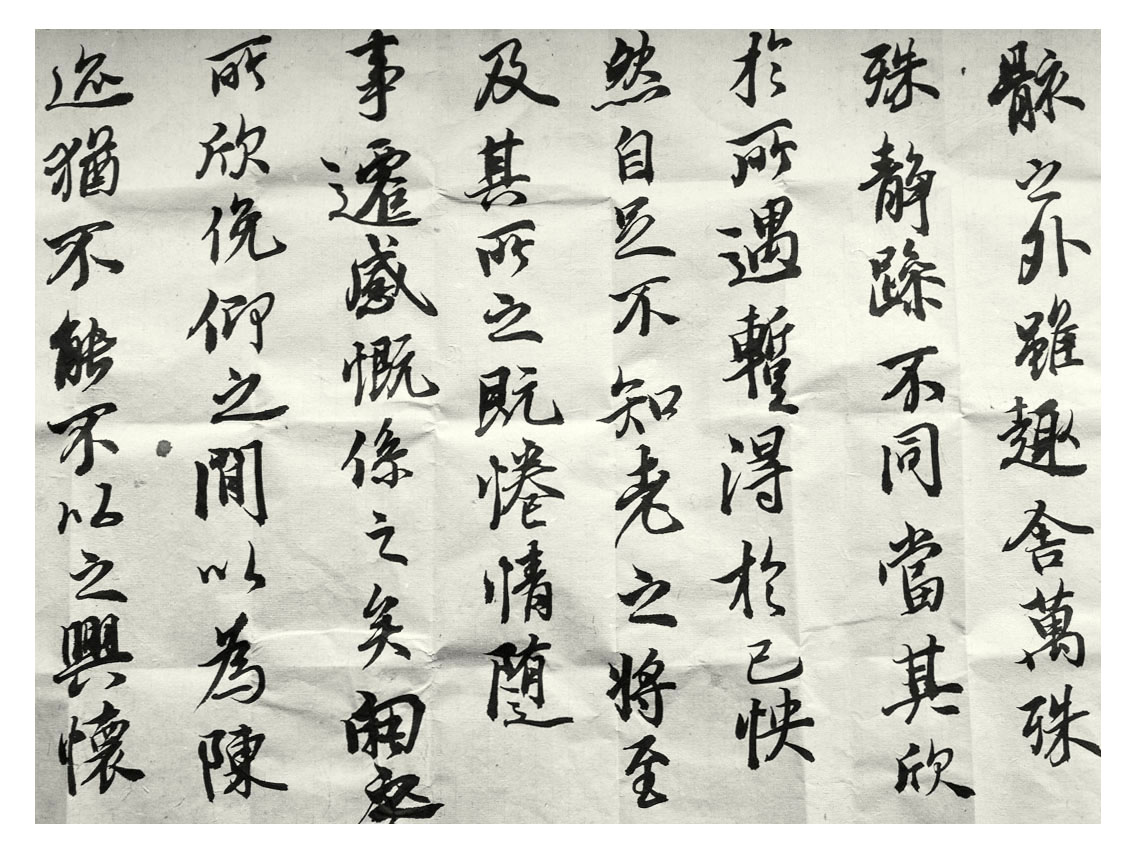 骸之外雖趣舍萬殊
殊静躁不同當其欣
於所遇暫得於己怏
然自足不知老之將至
及其所之既惓情随
事遷感慨係之矣
所欣俛仰之閒以為陳
迹猶不能不以之興懷